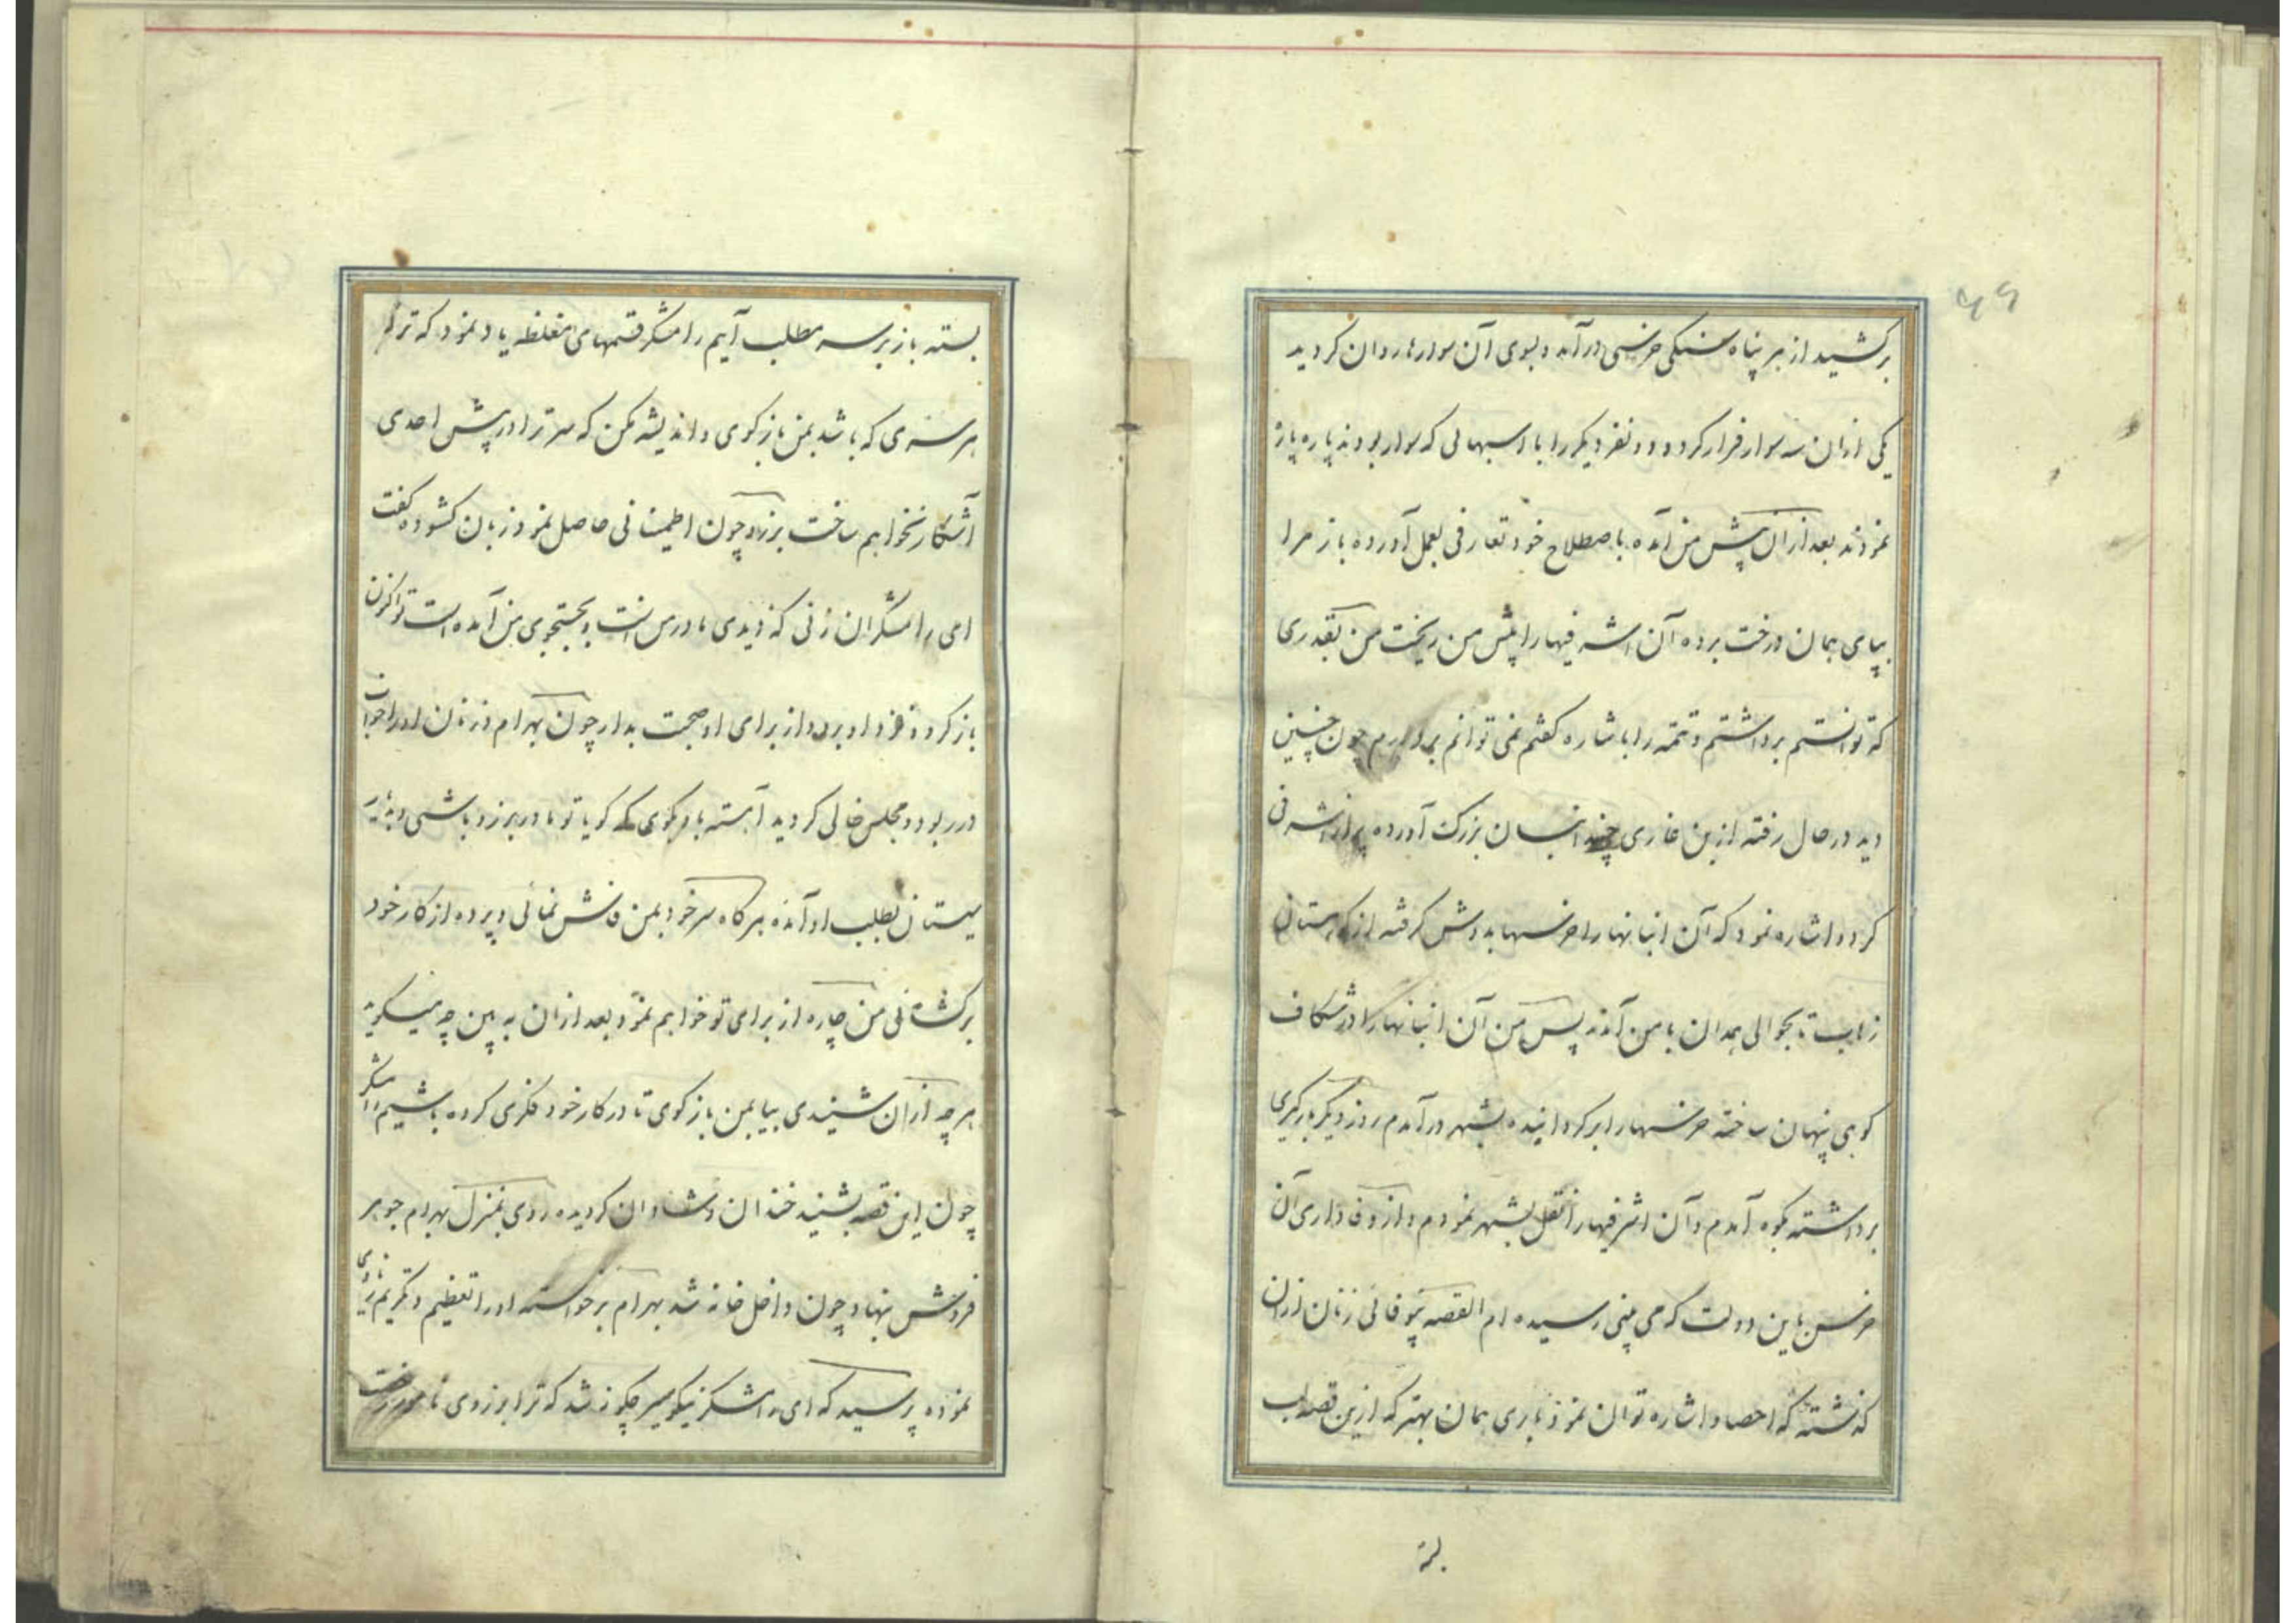 ۶۶
برکشید از هر پناه سنکی خرسی در آمد و بسوی آن سوارها روان کردید
یکی ازان سه سوار فرار کرد و دو نفر دیکر را با اسبهائی که سوار بودند پاره پاره
نمودند بعد ازان پیش من آمده باصطلاح خود تعارفی بعمل آورده باز مرا
بپای همان درخت برده آن اشرفیها را پیش من ریخت من بقدری
که توانستم برداشتم و تتمه را باشاره کفتم نمی توانم بردارم چون چنین
دید در حال رفته از بن غاری چند انبان بزرک آورده پر از اشرفی
کرد و اشاره نمود که آن انبانها را خرسها بدوش کرفته از کوهستان
تا بحوالی همدان با من آمدند پس من آن انبانها را در شکاف
کوهی پنهان ساخته خرسها را بر کردانیده بشهر در آمدم روز دیکر بارکیری
برداشته بکوه آمدم و آن اشرفیها را نقل بشهر نمودم و از وفاداری آن
خرس باین دولت که می بینی رسیده ام القصه بیوفائی زنان ازان
کذشته که احصا و اشاره توان نمود باری همان بهتر که ازین قصه لب
بسته
بسته باز بر سر مطلب آیم رامشکر قسمهای مغلظه یاد نمود که ترا
هر سری که باشد بمن باز کوی و اندیشه مکن که سر ترا در پیش احدی
آشکار نخواهم ساخت برزو چون اطمینانی حاصل نمود زبان کشوده کفت
ای رامشکر آن زنی که دیدی مادر من است و بجستجوی من آمده است تو اکنون
باز کرد و نزد او برو از برای او صحبت بدار چون بهرام و زنان او را خواب
در ربود و مجلس خالی کردید آهسته باو بکوی که کویا تو مادر برزو باشی و به
سیستان بطلب او آمده هرکاه سر خود بمن فاش نمائی و پرده از کار خود
برکشائی من چاره از برای تو خواهم نمود بعد ازان به بین چه میکوید
هر چه ازان شنیدی بیا بمن باز کوی تا در کار خود فکری کرده باشیم رامشکر
چون این قصه بشنید خندان و شادان کردیده روی بمنزل بهرام جوهر
فروش نهاد چون داخل خانه شد بهرام برخواسته او را تعظیم و تکریم
نموده پرسید که ای رامشکر نیکو سیر چکونه شد که ترا برزوی نامور